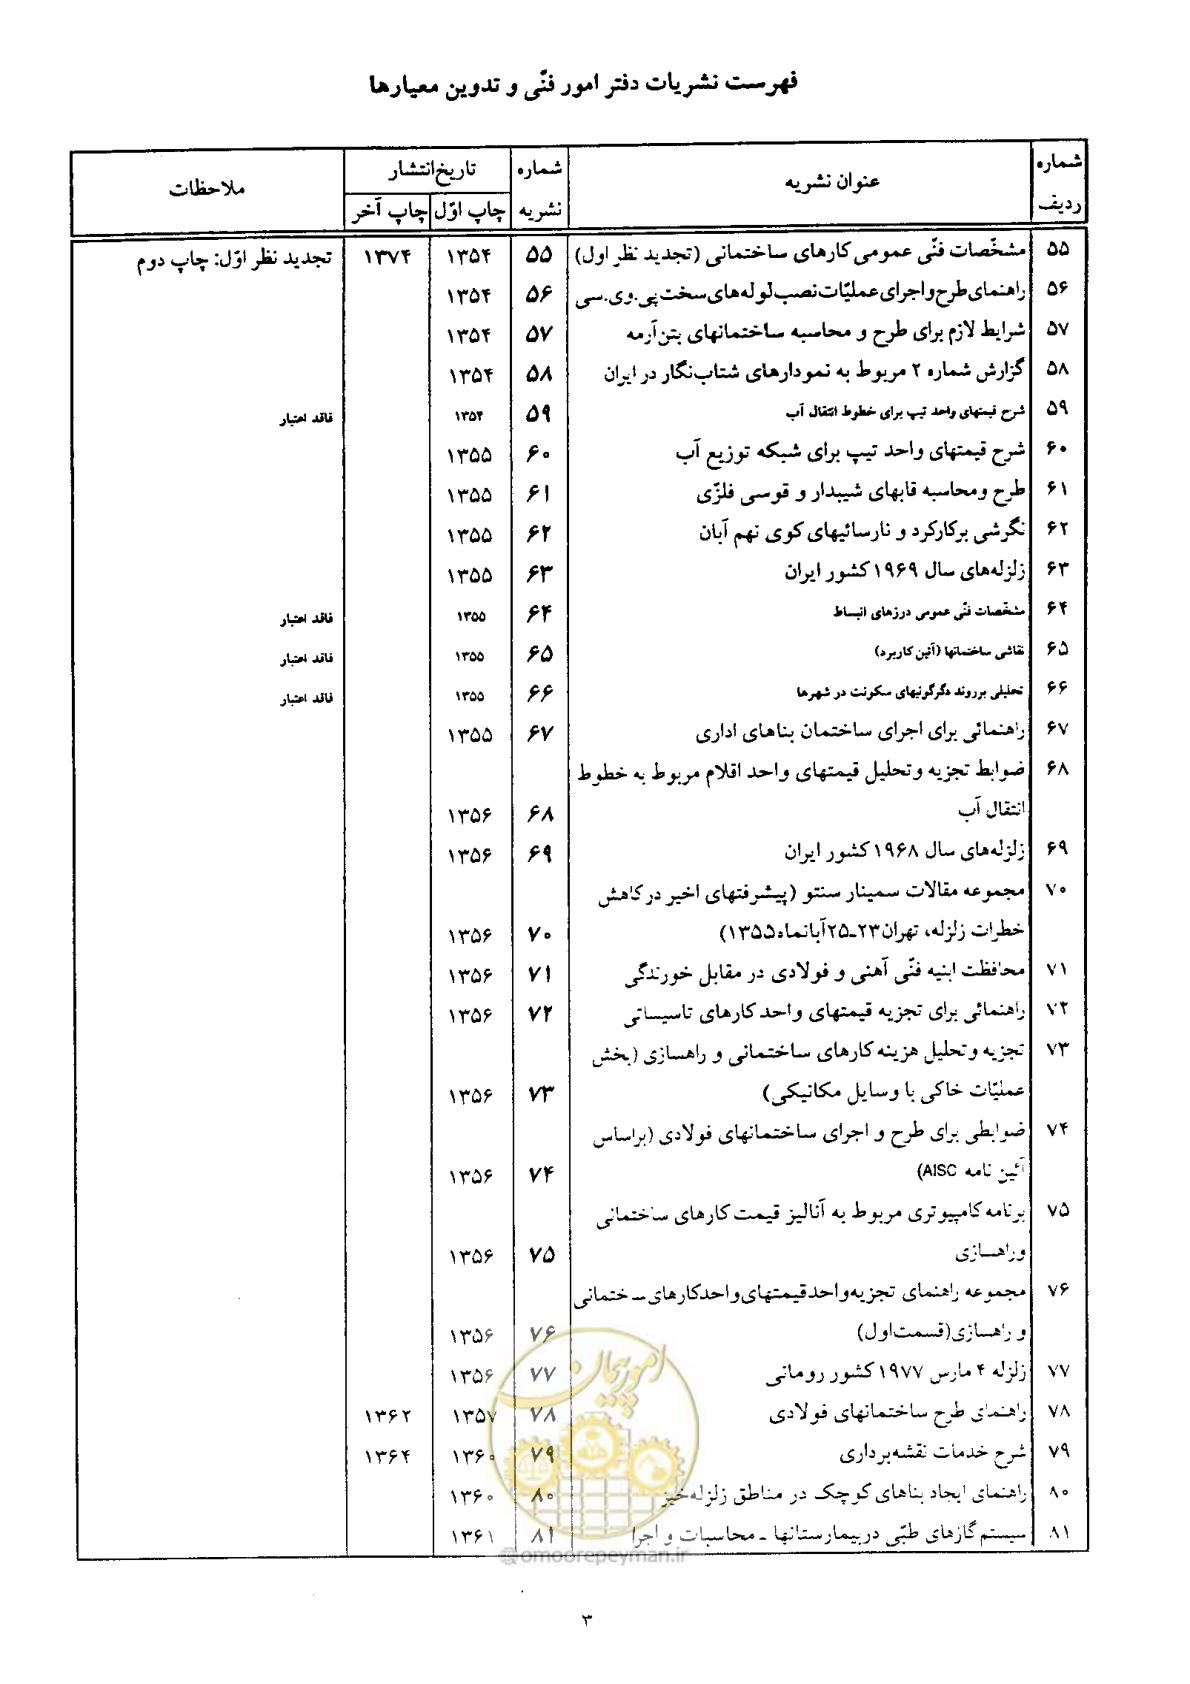 فهرست نشریات دفتر امور فنّی و تدوین معیارها
شماره ردیف | عنوان نشریه | شماره نشریه | تاریخ انتشار | ملاحظات
چاپ اوّل | چاپ آخر
۵۵ | مشخّصات فنّی عمومی کارهای ساختمانی (تجدید نظر اول) | ۵۵ | ۱۳۵۴ | ۱۳۷۴ | تجدید نظر اوّل: چاپ دوم
۵۶ | راهنمای طرح و اجرای عملیّات نصب لوله‌های سخت پی.وی.سی | ۵۶ | ۱۳۵۴
۵۷ | شرایط لازم برای طرح و محاسبه ساختمانهای بتن‌آرمه | ۵۷ | ۱۳۵۴
۵۸ | گزارش شماره ۲ مربوط به نمودارهای شتاب‌نگار در ایران | ۵۸ | ۱۳۵۴
۵۹ | شرح قیمتهای واحد تیپ برای خطوط انتقال آب | ۵۹ | ۱۳۵۴ | فاقد اعتبار
۶۰ | شرح قیمتهای واحد تیپ برای شبکه توزیع آب | ۶۰ | ۱۳۵۵
۶۱ | طرح و محاسبه قابهای شیبدار و قوسی فلزّی | ۶۱ | ۱۳۵۵
۶۲ | نگرشی برکارکرد و نارسائیهای کوی نهم آبان | ۶۲ | ۱۳۵۵
۶۳ | زلزله‌های سال ۱۹۶۹ کشور ایران | ۶۳ | ۱۳۵۵
۶۴ | مشخّصات فنّی عمومی درزهای انبساط | ۶۴ | ۱۳۵۵ | فاقد اعتبار
۶۵ | نقاشی ساختمانها (آئین کاربرد) | ۶۵ | ۱۳۵۵ | فاقد اعتبار
۶۶ | تحلیلی برروند دگرگونیهای سکونت در شهرها | ۶۶ | ۱۳۵۵ | فاقد اعتبار
۶۷ | راهنمائی برای اجرای ساختمان بناهای اداری | ۶۷ | ۱۳۵۵
۶۸ | ضوابط تجزیه و تحلیل قیمتهای واحد اقلام مربوط به خطوط
انتقال آب | ۶۸ | ۱۳۵۶
۶۹ | زلزله‌های سال ۱۹۶۸ کشور ایران | ۶۹ | ۱۳۵۶
۷۰ | مجموعه مقالات سمینار سنتو (پیشرفتهای اخیر در کاهش
خطرات زلزله، تهران ۲۳ـ۲۵ آبانماه ۱۳۵۵) | ۷۰ | ۱۳۵۶
۷۱ | محافظت ابنیه فنّی آهنی و فولادی در مقابل خورندگی | ۷۱ | ۱۳۵۶
۷۲ | راهنمائی برای تجزیه قیمتهای واحد کارهای تاسیساتی | ۷۲ | ۱۳۵۶
۷۳ | تجزیه و تحلیل هزینه کارهای ساختمانی و راهسازی (بخش
عملیّات خاکی با وسایل مکانیکی) | ۷۳ | ۱۳۵۶
۷۴ | ضوابطی برای طرح و اجرای ساختمانهای فولادی (براساس
آئین نامه AISC) | ۷۴ | ۱۳۵۶
۷۵ | برنامه کامپیوتری مربوط به آنالیز قیمت کارهای ساختمانی
و راهسازی | ۷۵ | ۱۳۵۶
۷۶ | مجموعه راهنمای تجزیه واحد قیمتهای واحد کارهای ساختمانی
و راهسازی (قسمت اول) | ۷۶ | ۱۳۵۶
۷۷ | زلزله ۴ مارس ۱۹۷۷ کشور رومانی | ۷۷ | ۱۳۵۶
۷۸ | راهنمای طرح ساختمانهای فولادی | ۷۸ | ۱۳۵۷ | ۱۳۶۲
۷۹ | شرح خدمات نقشه‌برداری | ۷۹ | ۱۳۶۰ | ۱۳۶۴
۸۰ | راهنمای ایجاد بناهای کوچک در مناطق زلزله‌خیز | ۸۰ | ۱۳۶۰
۸۱ | سیستم گازهای طبّی در بیمارستانها ـ محاسبات و اجرا | ۸۱ | ۱۳۶۱
امور پیمان
@omoorepeyman.ir
۳